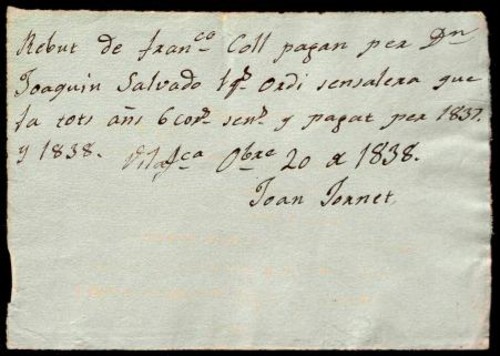 Rebut de fran.ca Coll pagan per Dn
Joaquin Salvado Ordi sensalera que
fa tots añs 6 cor.s sen.s y pagat per 1837.
y 1838. Vilaf.ca Obre 20 de 1838.
Joan Tornet